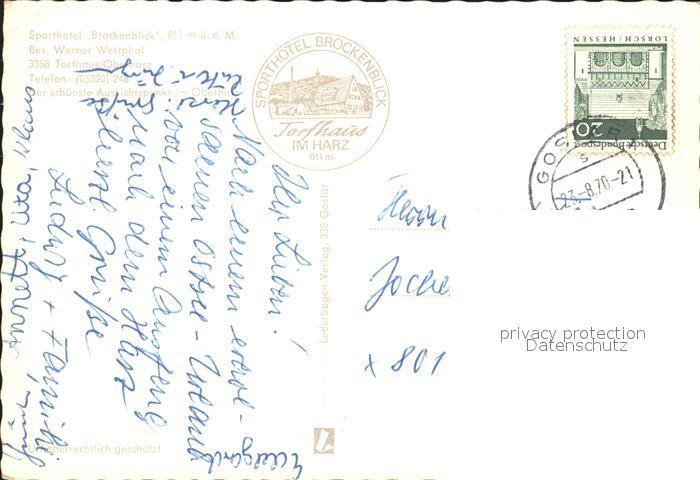 Sporthotel „Brockenblick", 811 m ü. d. M.
Bes. Werner Westphal
3388 Torfhaus/Oberharz
Telefon: (05320) 248
Der schönste Aussichtspunkt im Oberharz
SPORTHOTEL BROCKENBLICK
Torfhaus
IM HARZ
811 m
LORSCH/HESSEN
20
Deutsche Bundespost
GOSLAR
23.-8.70-21
Ihr Lieben!
Nach einem
schönen Ostsee-Urlaub
von einem Ausflug
nach dem Harz
herzl. Grüße
Ludwig + Familie
Annett, Uta, Klaus
Herzl. Grüße
Lederbogen-Verlag, 338 Goslar
Herrn
x 801
privacy protection
Datenschutz
Urheberrechtlich geschützt